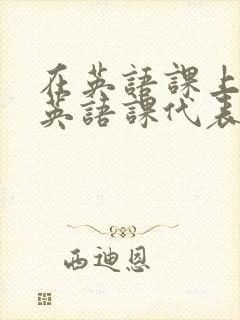 在英語課上
英語課代表
西迪恩